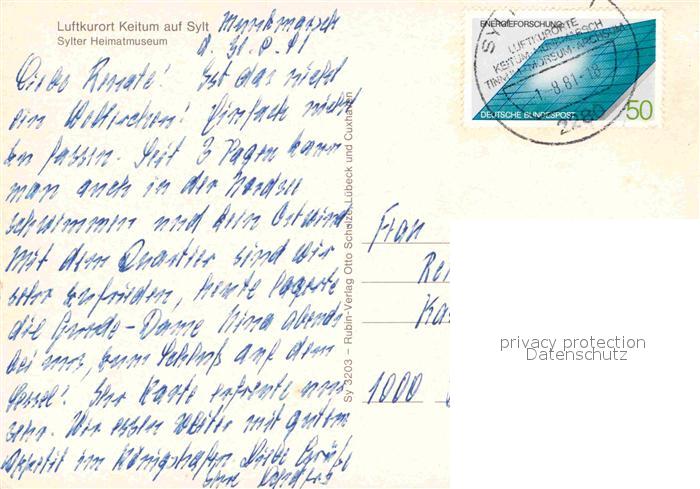 Luftkurort Keitum auf Sylt
Sylter Heimatmuseum
d. 31. 8. 81
Liebe Renate! Ist das nicht
ein Wetterchen! Einfach nicht
zu fassen. Seit 3 Tagen kann
man auch in der Nordsee
schwimmen und kein Ostwind
Mit dem Quartier sind wir
sehr zufrieden, heute lagerte
die Hunde-Dame abends
bei uns, zum Schluß auf dem
Sessel! Ihre Karte erfreute uns
sehr. Wir essen weiter mit gutem
Appetit im Königshafen Liebe Grüße
Ihre
Sy 3203 – Rubin-Verlag Otto Schulze, Lübeck und Cuxhaven
ENERGIEFORSCHUNG
DEUTSCHE BUNDESPOST
50
SY
LUFTKURORTE
KEITUM
TINNUM-MORSUM-ARCHSUM
8.81-18
2280
Frau
Re
Ka
1000
privacy protection
Datenschutz